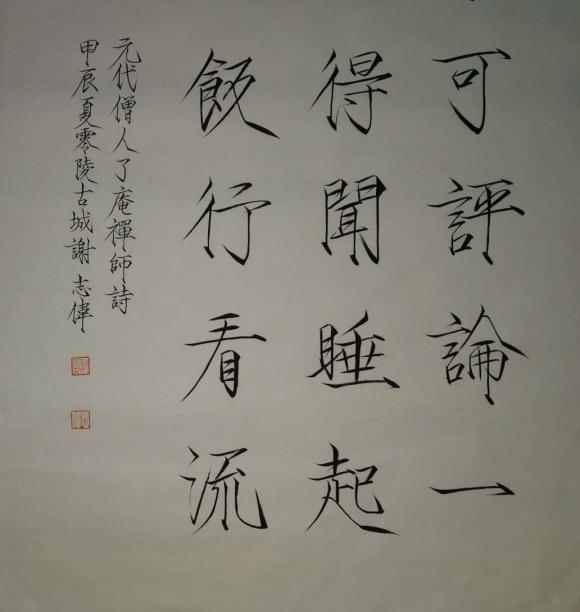 可評論一
得聞睡起
飯行看流
元代僧人了庵禪師詩
甲辰夏零陵古城謝志偉